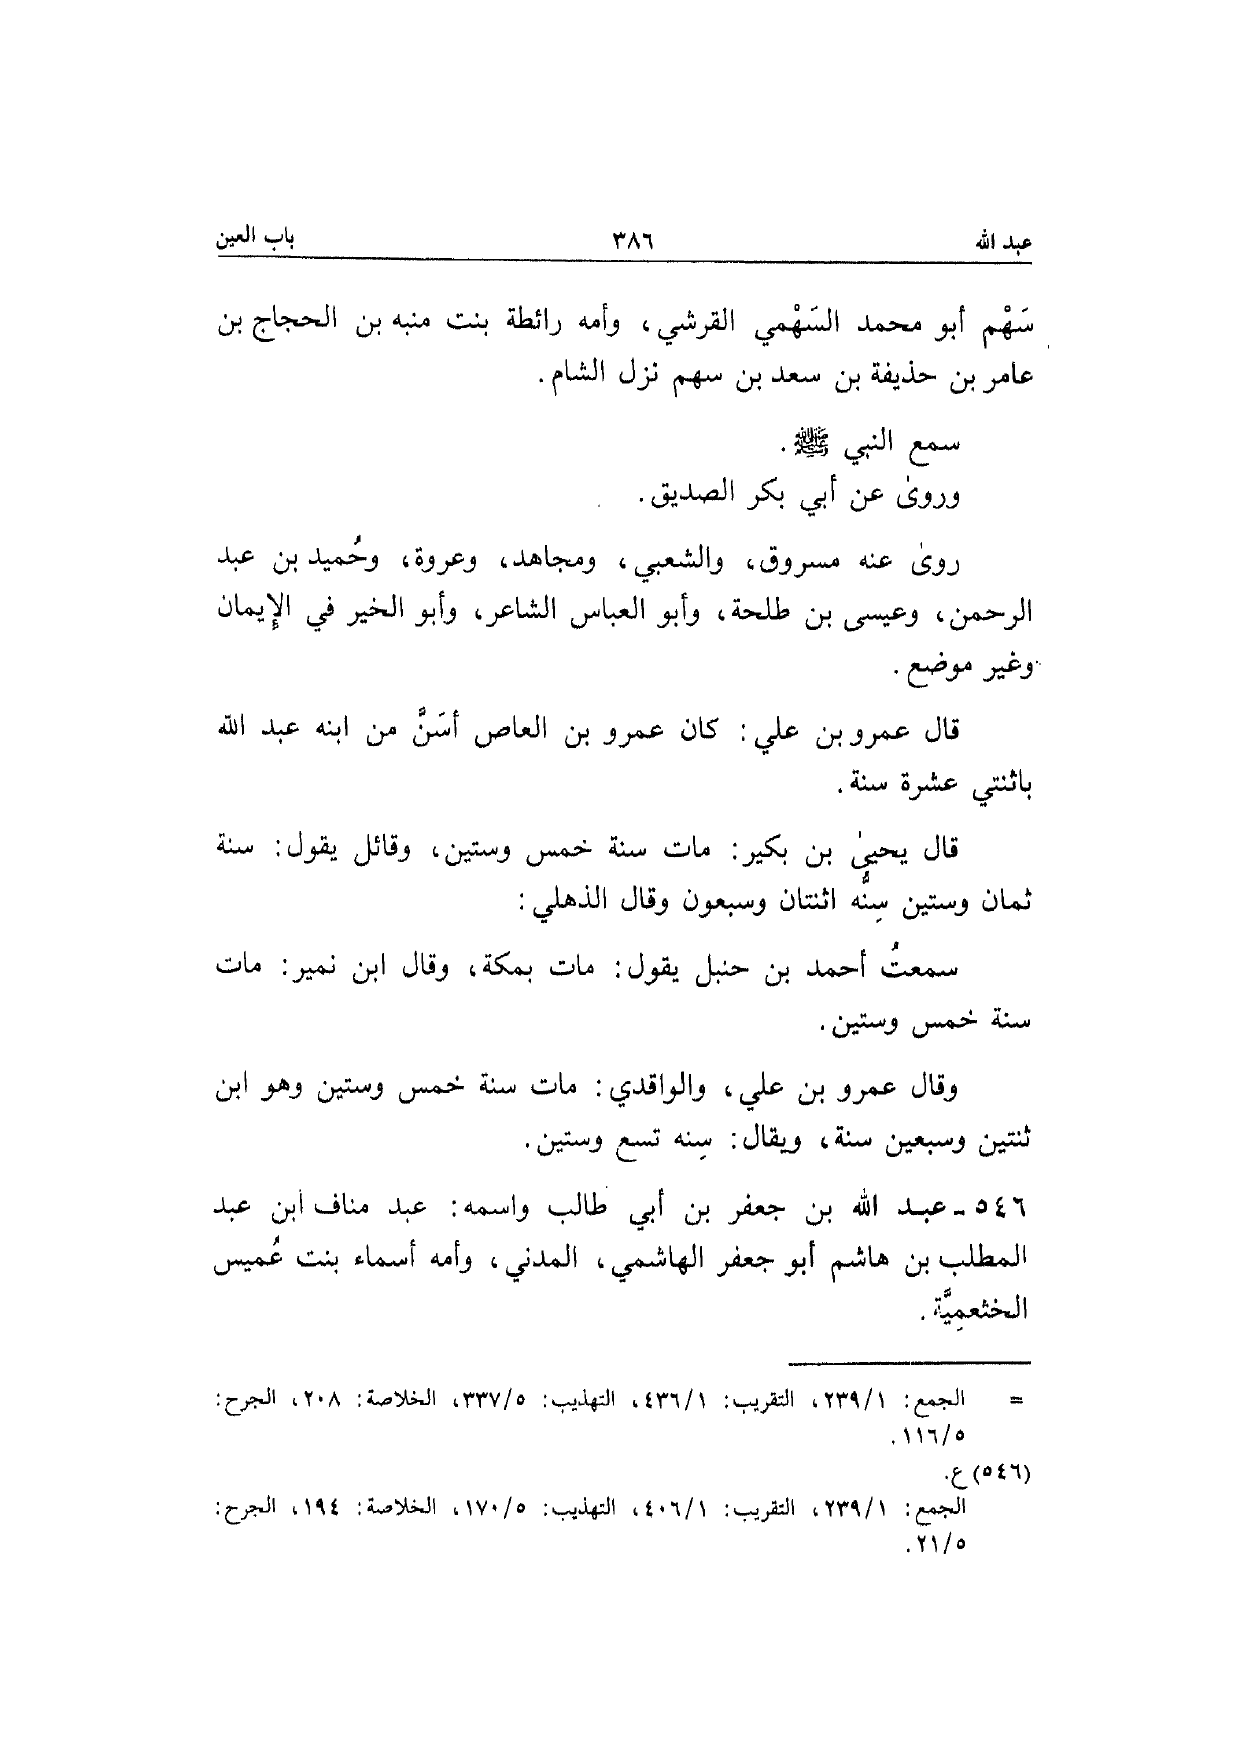 عبد الله ٣٨٦ باب العين
سَهْم أبو محمد السَهْمي القرشي، وأمه رائطة بنت منبه بن الحجاج بن
عامر بن حذيفة بن سعد بن سهم نزل الشام.
سمع النبي ﷺ.
وروىٰ عن أبي بكر الصديق.
روىٰ عنه مسروق، والشعبي، ومجاهد، وعروة، وحُميد بن عبد
الرحمن، وعيسى بن طلحة، وأبو العباس الشاعر، وأبو الخير في الإيمان
وغير موضع.
قال عمرو بن علي: كان عمرو بن العاص أسَنَّ من ابنه عبد الله
باثنتي عشرة سنة.
قال يحيىٰ بن بكير: مات سنة خمس وستين، وقائل يقول: سنة
ثمان وستين سِنُّه اثنتان وسبعون وقال الذهلي:
سمعتُ أحمد بن حنبل يقول: مات بمكة، وقال ابن نمير: مات
سنة خمس وستين.
وقال عمرو بن علي، والواقدي: مات سنة خمس وستين وهو ابن
ثنتين وسبعين سنة، ويقال: سِنه تسع وستين.
٥٤٦ - عبد الله بن جعفر بن أبي طالب واسمه: عبد مناف ابن عبد
المطلب بن هاشم أبو جعفر الهاشمي، المدني، وأمه أسماء بنت عُميس
الخثعمِيَّة.
= الجمع: ٢٣٩/١، التقريب: ٤٣٦/١، التهذيب: ٣٣٧/٥، الخلاصة: ٢٠٨، الجرح:
١١٦/٥.
(٥٤٦) ع.
الجمع: ٢٣٩/١، التقريب: ٤٠٦/١، التهذيب: ١٧٠/٥، الخلاصة: ١٩٤، الجرح:
٢١/٥.